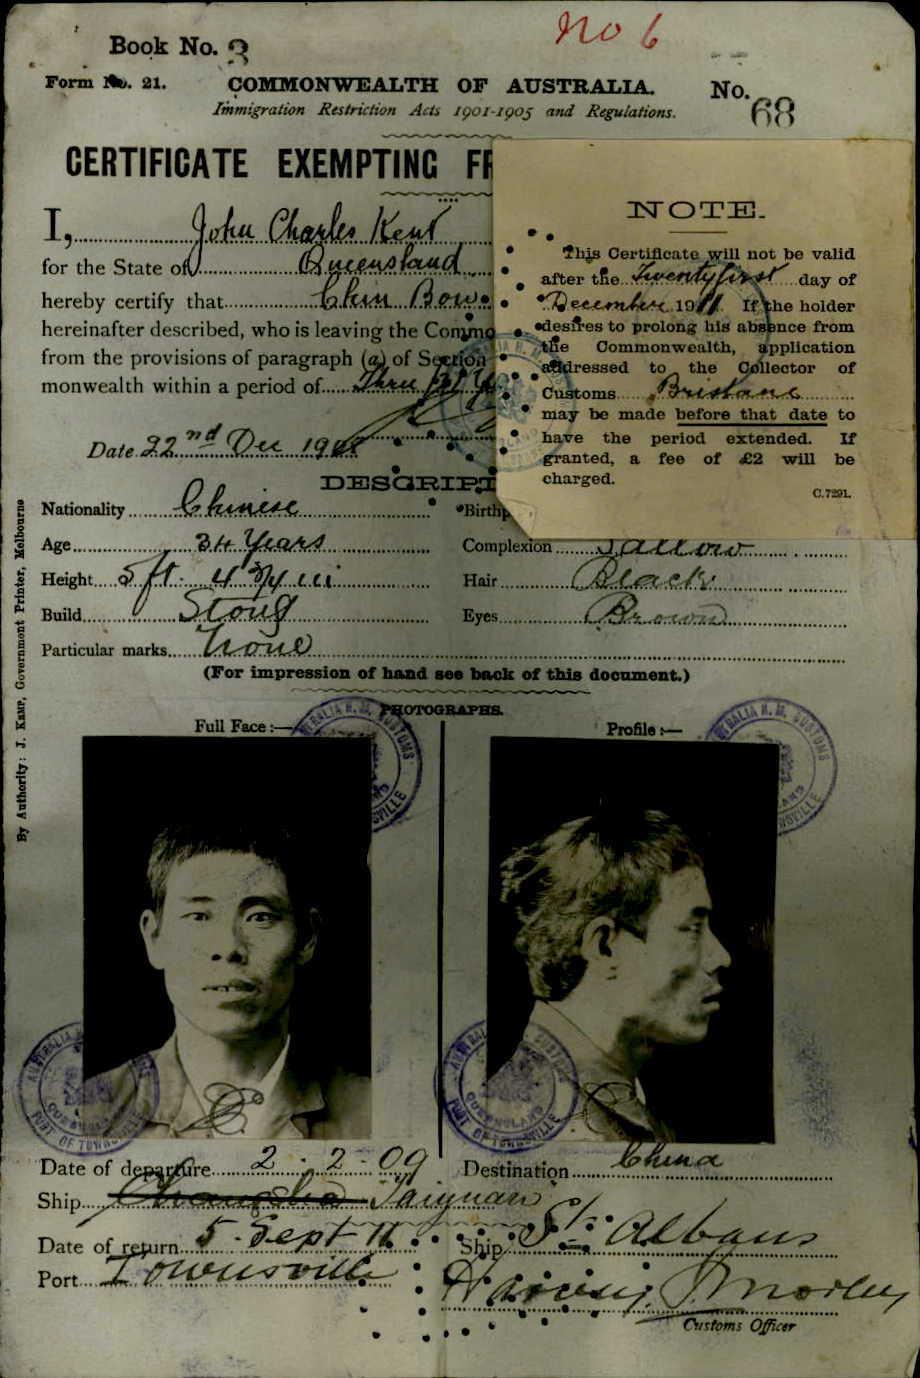 No 6
Book No. 3
Form No. 21. COMMONWEALTH OF AUSTRALIA. No. 68
Immigration Restriction Acts 1901-1905 and Regulations.
CERTIFICATE EXEMPTING FR
I, John Charles Kent
for the State of Queensland
hereby certify that Chin Bow
hereinafter described, who is leaving the Commo
from the provisions of paragraph (a) of Section
monwealth within a period of Three
Date 22nd Dec 190
NOTE.
This Certificate will not be valid
after the Twentyfirst day of
December 1911 If the holder
desires to prolong his absence from
the Commonwealth, application
addressed to the Collector of
Customs Brisbane
may be made before that date to
have the period extended. If
granted, a fee of £2 will be
charged.
C.7291.
DESCRIPT
Nationality Chinese Birthp
Age 34 Years Complexion Sallow
Height 5 ft. 4 3/4 in Hair Black
Build Stout Eyes Brown
Particular marks None
(For impression of hand see back of this document.)
PHOTOGRAPHS.
Full Face :— Profile :—
By Authority: J. Kemp, Government Printer, Melbourne
AUSTRALIA H. M. CUSTOMS
QUEENSLAND
PORT OF TOWNSVILLE
Date of departure 2.2.09 Destination China
Ship Changsha Taiyuan
Date of return 5. Sept 11 Ship St. Albans
Port Townsville
Customs Officer